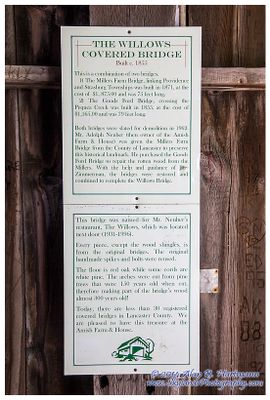 THE WILLOWS
COVERED BRIDGE
Built c. 1855
This is a combination of two bridges.
1) The Millers Farm Bridge, linking Providence
and Strasburg Townships was built in 1871, at the
cost of $1,875.00 and was 75 feet long.
2) The Goods Ford Bridge, crossing the
Pequea Creek was built in 1855, at the cost of
$1,165.00 and was 79 feet long.
Both bridges were slated for demolition in 1962.
Mr. Adolph Neuber then owner of the Amish
Farm & House) was given the Millers Farm
Bridge from the County of Lancaster to preserve
this historical landmark. He purchased the Goods
Ford Bridge to repair the rotten wood from the
Millers. With the help and guidance of
Zimmerman, the bridges were restored and
combined to complete the Willows Bridge.
This bridge was named for Mr. Neuber's
restaurant, The Willows, which was located
next door (1931-1996).
Every piece, except the wood shingles, is
from the original bridges. The original
handmade spikes and bolts were reused.
The floor is red oak while some cords are
white pine. The arches were cut from pine
trees that were 150 years old when cut,
therefore making part of the bridge's wood
almost 300 years old!
Today, there are less than 30 registered
covered bridges in Lancaster County. We
are pleased to have this treasure at the
Amish Farm & House.